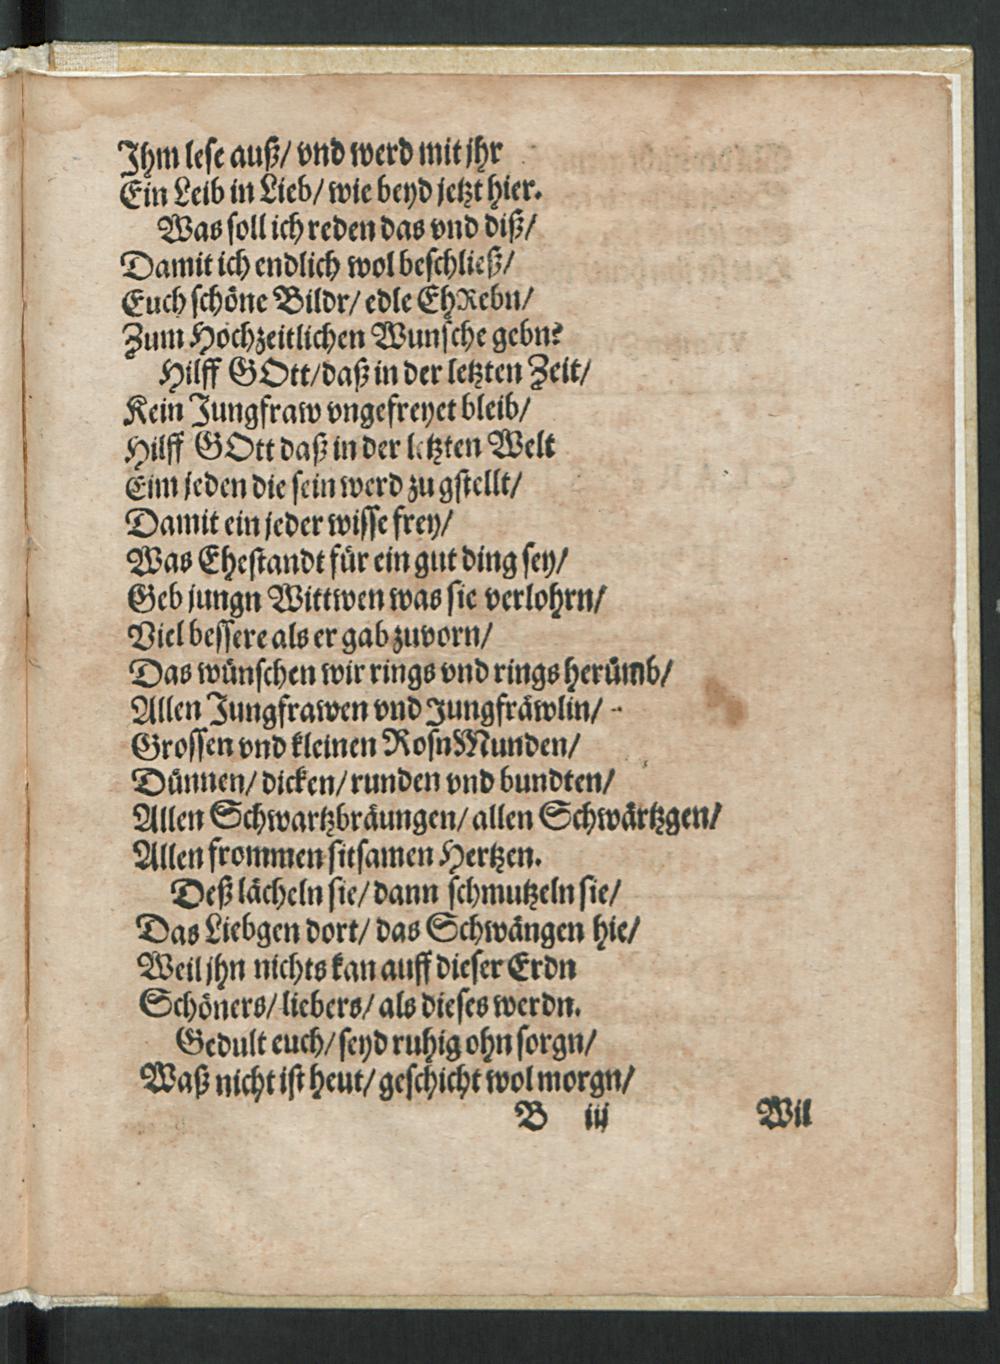 Ihm lese auß/ vnd werd mit jhr
Ein Leib in Lieb/ wie beyd jetzt hier.
Was soll ich reden das vnd diß/
Damit ich endlich wol beschließ/
Euch schöne Bildr/ edle EhRebn/
Zum Hochzeitlichen Wunsche gebn?
Hilff GOtt/ daß in der letzten Zeit/
Kein Jungfraw vngefreyet bleib/
Hilff GOtt daß in der letzten Welt
Eim jeden die sein werd zu gstellt/
Damit ein jeder wisse frey/
Was Ehestandt für ein gut ding sey/
Geb jungn Wittwen was sie verlohrn/
Viel bessere als er gab zuvorn/
Das wünschen wir rings vnd rings herümb/
Allen Jungfrawen vnd Jungfräwlin/
Grossen vnd kleinen RosnMunden/
Dünnen/ dicken/ runden vnd bundten/
Allen Schwartzbräungen/ allen Schwärtzgen/
Allen frommen sitsamen Hertzen.
Deß lächeln sie/ dann schmutzeln sie/
Das Liebgen dort/ das Schwängen hie/
Weil jhn nichts kan auff dieser Erdn
Schöners/ liebers/ als dieses werdn.
Gedult euch/ seyd ruhig ohn sorgn/
Waß nicht ist heut/ geschicht wol morgn/
B iij Wil